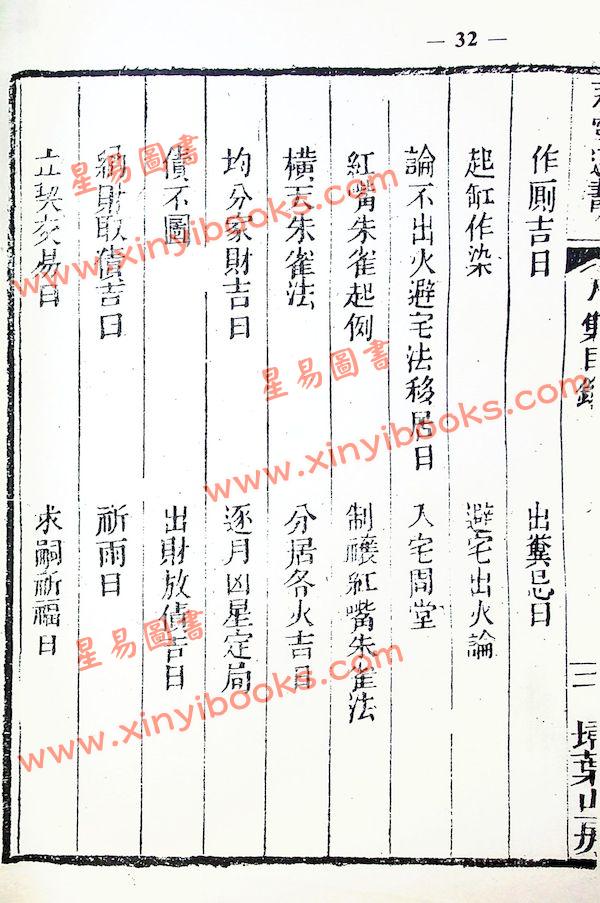 — 32 —
八集目錄
二
埽葉山房
作厠吉日
出糞忌日
起缸作染
避宅出火論
論不出火避宅法移居日
入宅問堂
紅嘴朱雀起例
制禳紅嘴朱雀法
橫天朱雀法
分居各火吉日
均分家財吉日
逐月凶星定局
債不圖
出財放債吉日
納財取債吉日
祈雨日
立契交易日
求嗣祈福日
星易圖書
www.xinyibooks.com
星易圖書
www.xinyibooks.com
星易圖書
www.xinyibooks.com